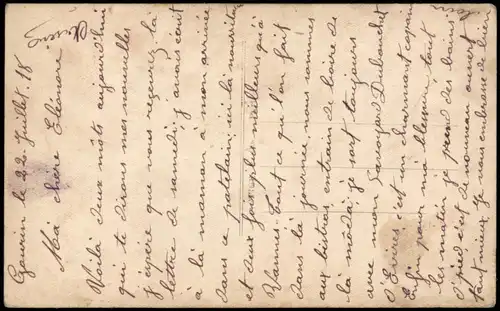 Gourin le 22 Juillet. 18
Ma chère Eléonore
Voilà deux môts aujourd'hui
qui te dirons mes nouvelles
j'éspère que vous reçevrez la
lettre de samedi, j'envoyé
à là maman à mon arrivée
dans ce patelain; ici là nourritur
et deux fois plus meilleurs qu'à
Vannes. Tout ce que l'on fait
dans là journée nous sommes
aux bistros entrain de boire de
là môda; je sort toujours
avec mon Savoyard Dubouchet
d'Evires c'est un charmant copain
Enfin pour mà blessur tout
les matin je prend des bains
d'pied c'est de nouveau ouvert
tant mieux. Je vous embrasse de bien